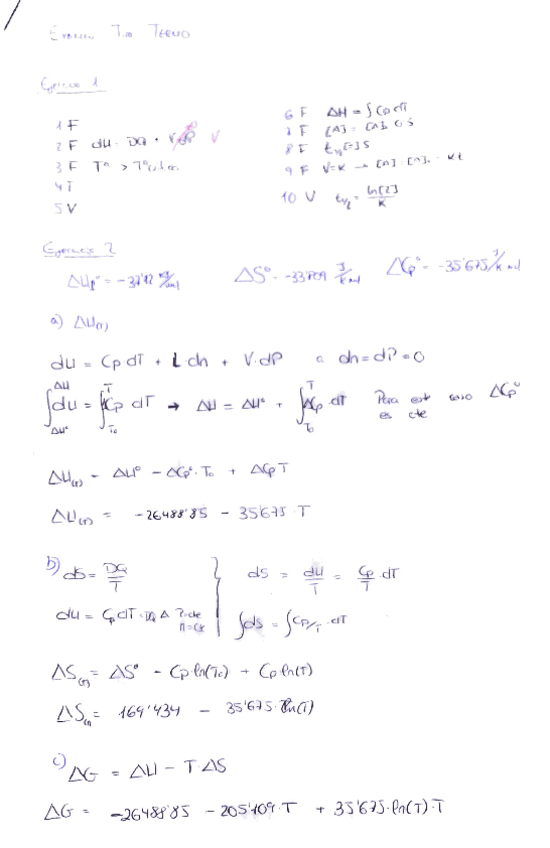 Examen Tmo Termo
Ejercicio 1
1 F
2 F dU = DQ + V·dP V
3 F
4 F
5 V
6 F ΔH = ∫Cp dT
7 F
8 F t½ [=] s
9 F V=K → [A] = [A]₀ · Kt
10 V t½ = ln[2]/K
Ejercicio 2
ΔS° = -33'709 J/K mol ΔCp° = -35'675 J/K mol
a) ΔH(T)
dH = Cp dT + L dn + V·dP dn=dP=0
∫dH = ∫Cp dT → ΔH = ΔH° + ∫ΔCp dT Para este caso ΔCp° es cte
ΔH(T) = ΔH° - ΔCp°·T₀ + ΔCpT
ΔH(T) = -26488'85 - 35'675 T
b) dS = DQ/T
dH = Cp dT = DQ P=cte
dS = dH/T = Cp/T dT
∫dS = ∫Cp/T dT
ΔS(T) = ΔS° - Cp ln(T₀) + Cp ln(T)
ΔS(T) = 169'434 - 35'675 · ln(T)
c) ΔG = ΔH - TΔS
ΔG = -26488'85 - 205'109·T + 35'675·ln(T)·T